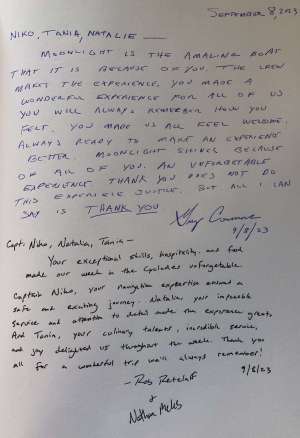 September 8, 2023
Niko, Tania, Natalie —
Moonlight is the amazing boat
that it is because of you. The crew
makes the experience. You made a
wonderful experience for all of us
you will always remember how you
felt. You made us all feel welcome.
Always ready to make an experience
better. Moonlight shines because
of all of you. An unforgetable
experience. Thank you does not do
this experience justice. But all I can
say is THANK YOU
9/8/23
Capt. Niko, Natalia, Tania —
Your exceptional skills, hospitality, and food
made our week in the Cyclades unforgetable.
Captain Niko, your navigation expertise ensured a
safe and exciting journey. Natalia, your impeccable
service and attention to detail made the experience great.
And Tania, your culinary talents, incredible service,
and joy delighted us throughout the week. Thank you
all for a wonderful trip we'll always remember!
— Rob Retzlaff 9/8/23
+
Nathan